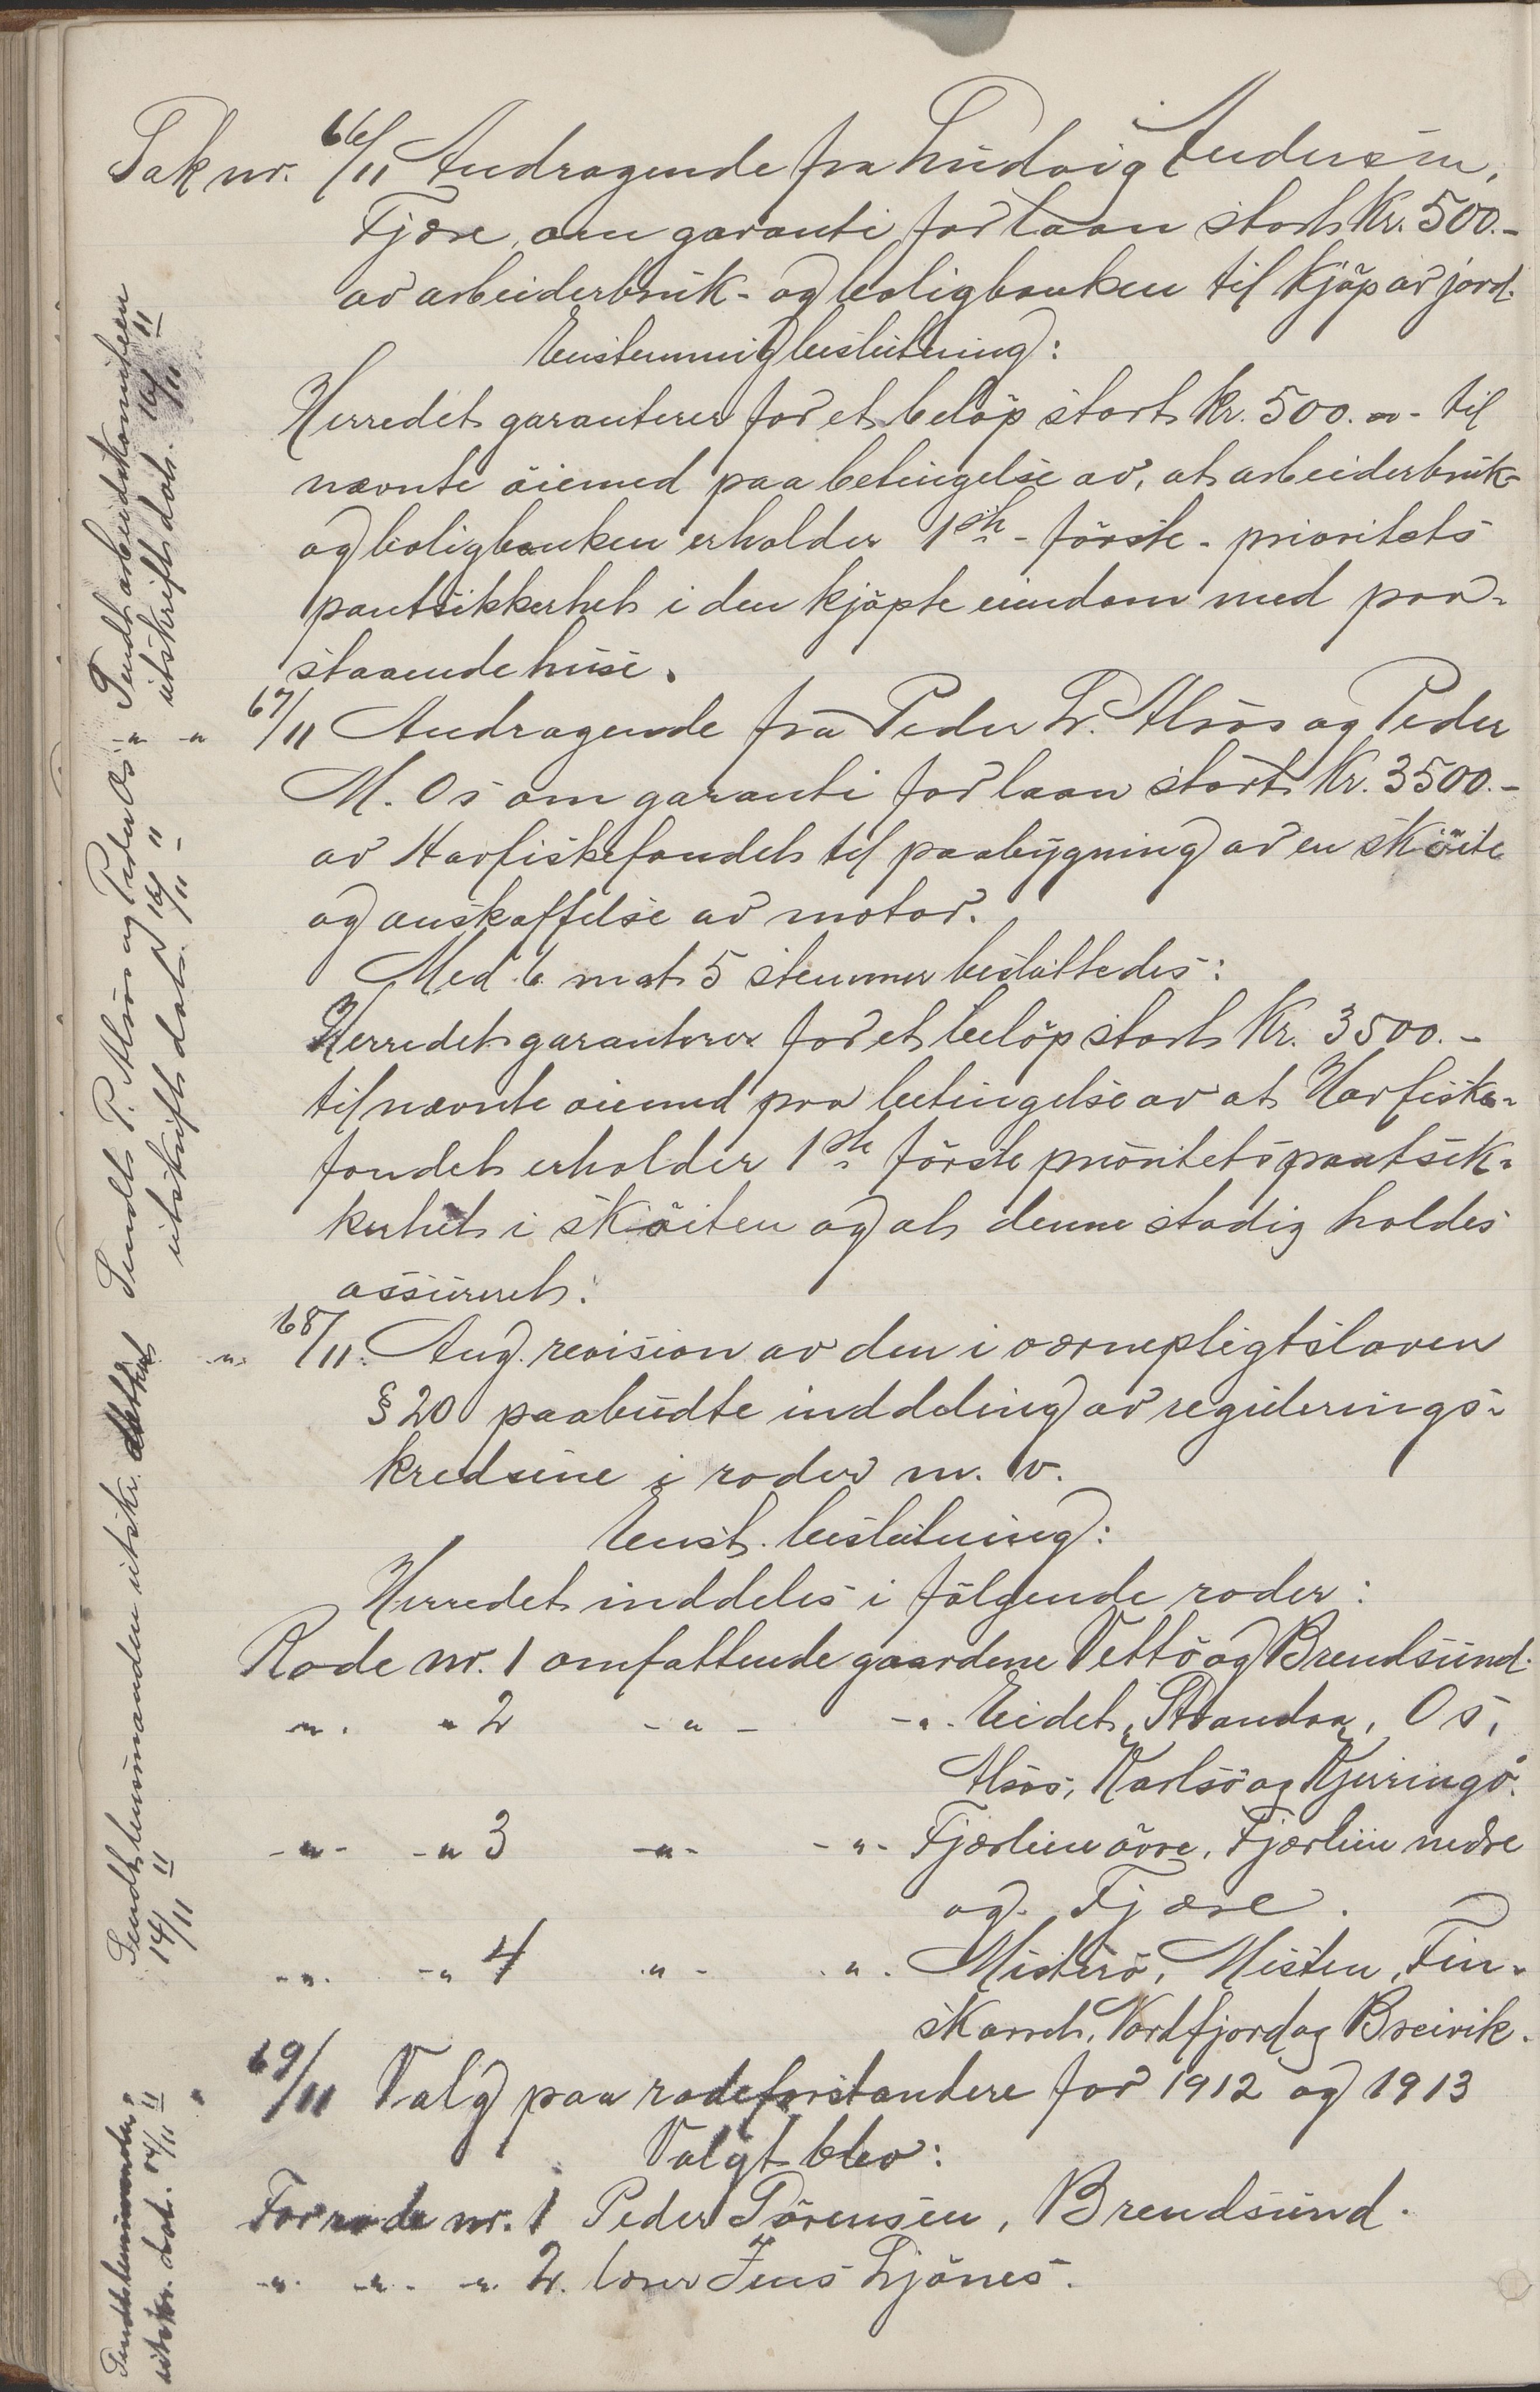 Sak nr. 66/11 Andragende fra Ludvig Andersen,
Fjære, om garanti for laan stort Kr. 500.-
av arbeiderbruk- og boligbanken til kjøp av jord.
Enstemmig beslutning:
Herredet garanterer for et beløp stort kr. 500.00- til
nævnte øiemed paa betingelse av, at arbeiderbruk-
og boligbanken erholder 1ste - første - prioritets
pantsikkerhet i den kjøpte eiendom med paa-
staaende huse.
-"- -"- 67/11 Andragende fra Peder L. Alsos og Peder
M. Os om garanti for laan stort Kr. 3500.-
av Havfiskefondet til paabygning av en skøite
og anskaffelse av motor.
Med 6 mot 5 stemmer besluttedes:
Herredet garanterer for et beløp stort Kr. 3500.-
til nævnte øiemed paa betingelse av at Havfiske-
fondet erholder 1ste første prioritets pantsik-
kerhet i skøiten og at denne stadig holdes
assureret.
-"- 68/11. Ang. revision av den i værnepligtsloven
§ 20 paabudte inddeling av regulerings-
kredsene i roder m. v.
Enst. beslutning:
Herredet inddeles i følgende roder:
Rode nr. 1 omfattende gaardene Vettø og Brendsund.
-"- -" 2 -"- -"- Eidet, Strandaa, Os,
Alsos, Karlsø og Kjerringø.
-"- -" 3 -"- -"- Fjærlien øvre, Fjærlien nedre
og Fjære.
-"- -" 4 -"- -"- Misterø, Misten, Fin-
skaret, Nordfjord og Breivik.
" 69/11 Valg paa rodeforstandere for 1912 og 1913
Valgt blev:
For rode nr. 1 Peder Sørensen, Brendsund.
-"- -"- -"- 2. lærer Jens Ljønes.
Sendt arbeidskomiteen
utskrift dat. 16/11 11
Sendt P. Alsos og Peder Os
utskrift dat. 16/11 11
Sendt lensmanden utskr.
14/11 11
Sendt lensmanden
utskr. dat. 14/11 11